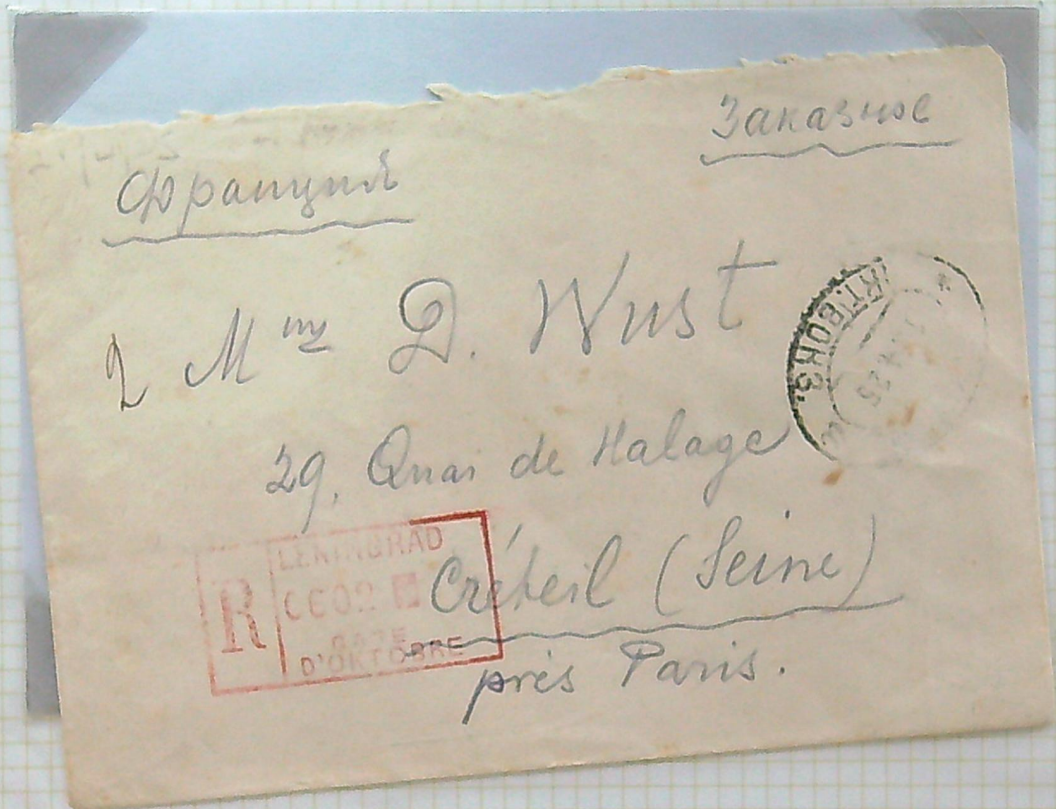 Заказное
Франция
2 Mme D. Wust
29, Quai de Halage
Créteil (Seine)
près Paris.
R
LENINGRAD
GARE
D'OKTOBRE
ОКТ. ВОКЗ.